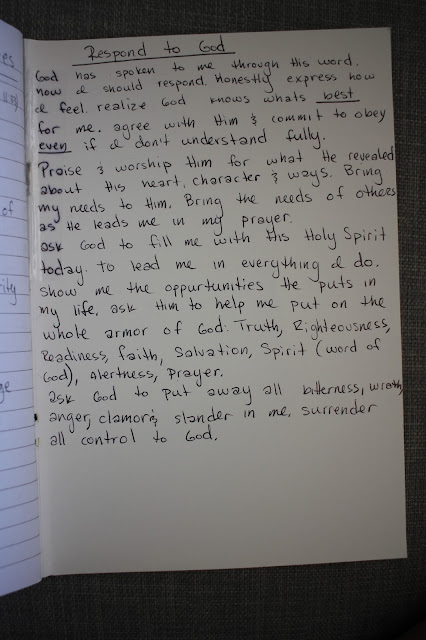 Respond to God
God has spoken to me through His word.
now I should respond. Honestly express how
I feel. realize God knows whats best
for me. agree with Him & commit to obey
even if I don't understand fully.
Praise & worship Him for what He revealed
about His heart, character & ways. Bring
my needs to Him. Bring the needs of others
as He leads me in my prayer.
ask God to fill me with His Holy Spirit
today. to lead me in everything I do.
show me the oppurtunities He puts in
my life, ask Him to help me put on the
whole armor of God: Truth, Righteousness,
Readiness, faith, Salvation, Spirit (word of
God), Alertness, Prayer.
ask God to put away all bitterness, wrath,
anger, clamor & slander in me. surrender
all control to God.
of